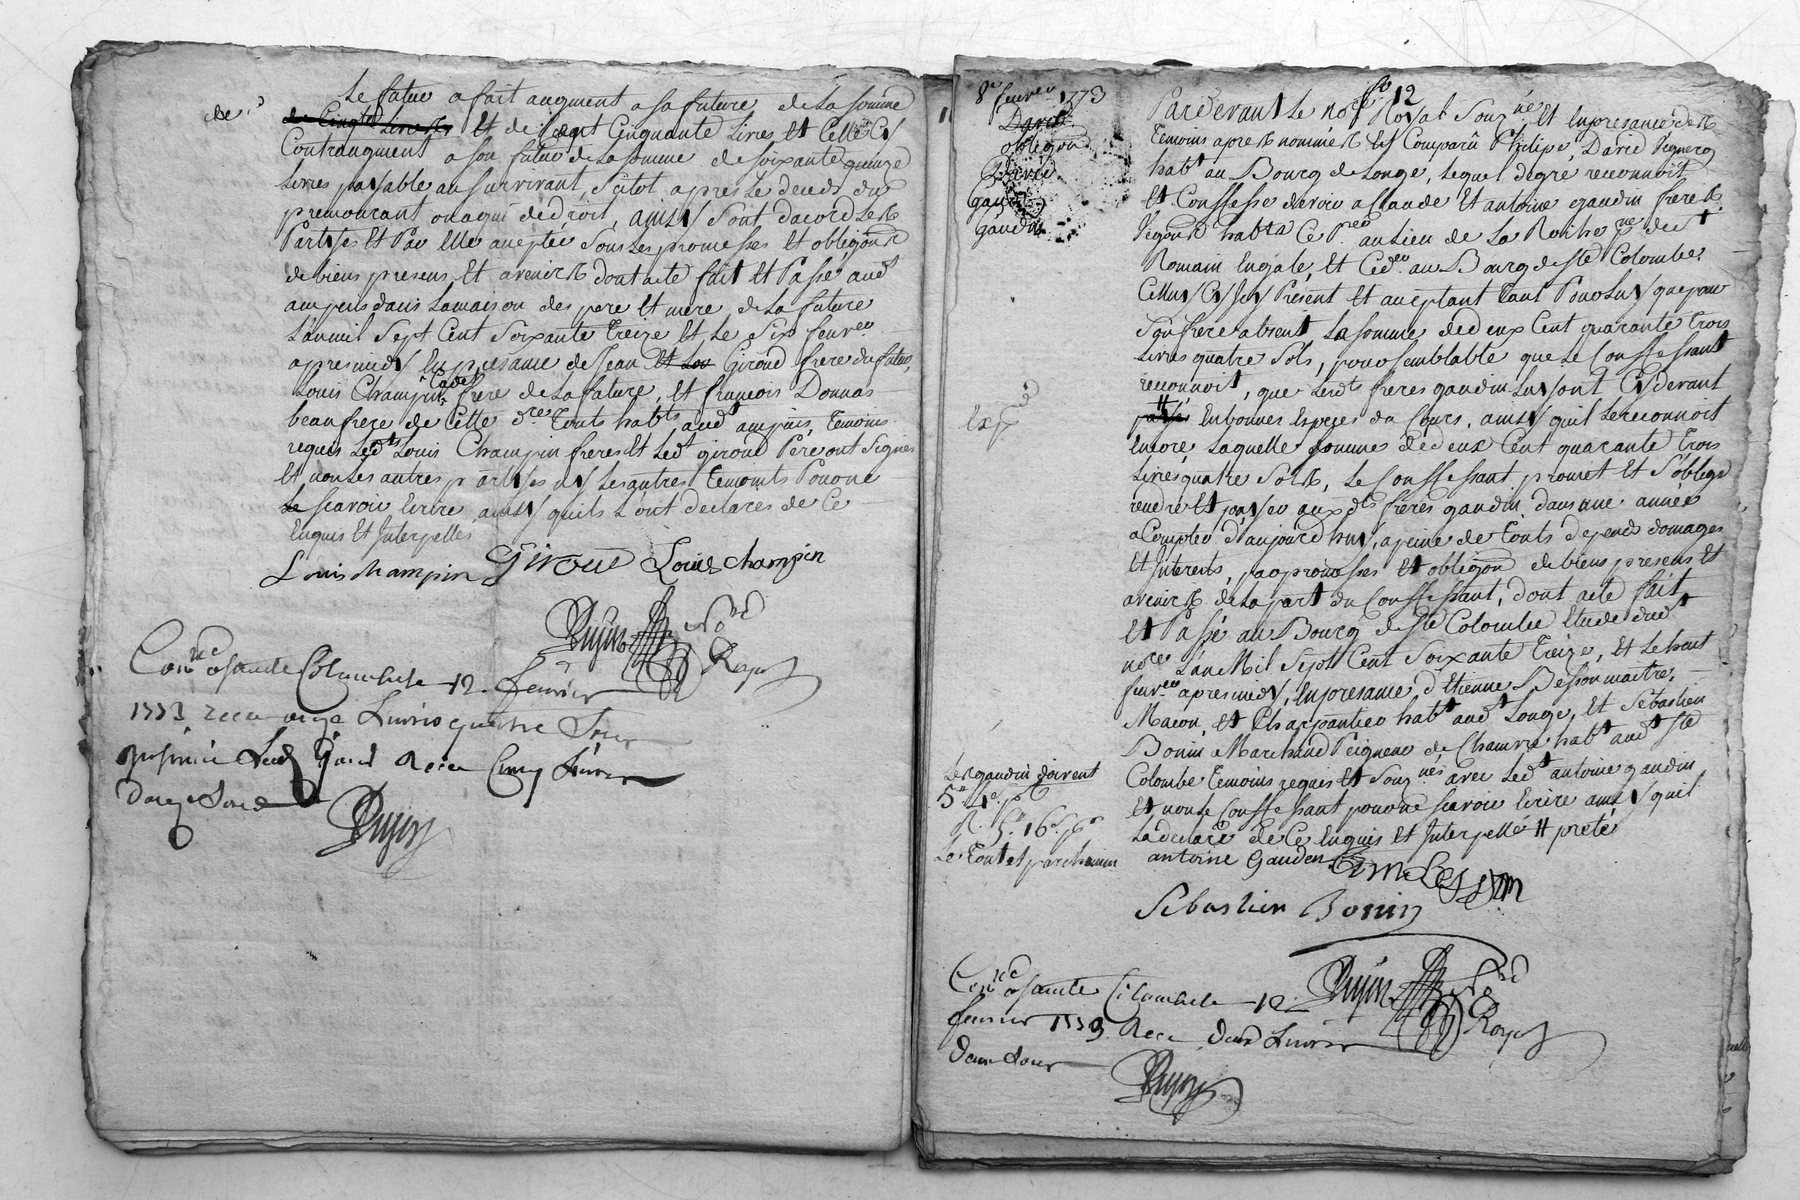 Le futur a fait augment a sa future de la somme
de
de Cinqte Livres Et de Cent Cinquante Livres Et Celle Cy
Contraugment a son futur de la somme de soixante quinze
Livres payable au survivant, sitot apres le deceds du
premourant ou aqui de droit, ainsy sont dacord les
Parties Et Par Elle acceptée sous les promesses Et obligons
de biens presens Et avenir dont acte fait Et Passé aud
ampuis dans la maison des pere Et mere de la future
L'an mil Sept Cent Soixante Treize Et le Six fevrer
apresmidy En presance de Jean Et Lou Giroud frere du futur,
Louis Champin Cadet frere de la future, Et françois Donnas
beaufrere de Cette dre Touts habts aud ampuis, Temoins
requis Lesdts Louis Champin freres Et Ledt giroud Pere ont signés
Et non les autres parties ny les autres Temoints Pour ne
Le scavoir Ecrire ainsy quils L'ont declarés de Ce
Enquis Et Interpellés
Louis champin Giroud Louis champin
Dujin Nore
Royal
Conlé a Sainte Colombe le 12 fevrier
1773 recu onze Livres quatre Sous
Livres
Douze Sous
Dujin
fo 12
8e fevrer 1773
Darcé
obligon
gaudin
Par devant Le nore Royal Souzné Et En presance des
Temoins apres nommés Est Comparû Philipe Darcé Vigneron
habt au Bourg de Longe, Lequel de gre reconnoit
Et Confesse devoir a Claude Et antoine gaudin freres
Vegours habts Ce Premier au Lieu de La Roche psse de St
Romain En gale, Et Ceder au Bourg de Ste Colombe
Celluy Cy Icy Présent Et acceptant Tant Pour Luy que pour
Son frere absent La somme de deux Cent quarante Trois
Livres quatre Sols, pour semblable que Le Confessant
reconnoit, que Lesdts freres gaudin Luy ont Cy devant
# En bonnes Especes du Cours, ainsy quil Le reconnoit
Encore Laquelle somme de deux Cent quarante Trois
Livres quatre Sols, Le Confessant promet Et S'oblige
rendre Et payer aux dts freres gaudin dans une année
a Compter d'aujourd'huy, a peine de Touts depends domages
Et Interets, par promesses Et obligon de biens presens Et
avenir de La part du Confessant, dont acte fait
Et Passé au Bourg de Ste Colombe Etude dudt
nore L'an Mil Sept Cent Soixante Treize, Et Le huit
fevrer apresmidy, En presance d'Etienne Besson maitre
Macon, Et Charpantier habt audt Longe, Et Sebastien
Bonin Marchand Peigneur de Chanvre habt audt Ste
Colombe Temoins requis Et Souznés avec Ledt antoine gaudin
Et non Le Confessant pour ne scavoir Ecrire ainsy quil
La declaré de Ce Enquis Et Interpellé # preté
Exp
Les gaudin doivent
5# 4s
R. 5# 16s
Le Tout et parchemin
antoine Gauden Etine Besson
Sebastien Bonin
Dujin Nore
Royal
Conlé a Sainte Colombe le 12
fevrier 1773 Recu Deux Livres
Deux Sous
Dujin